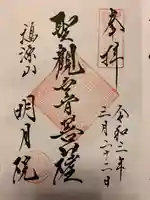 奉拝
令和三年
三月二十二日
聖観音菩薩
福源山
明月院